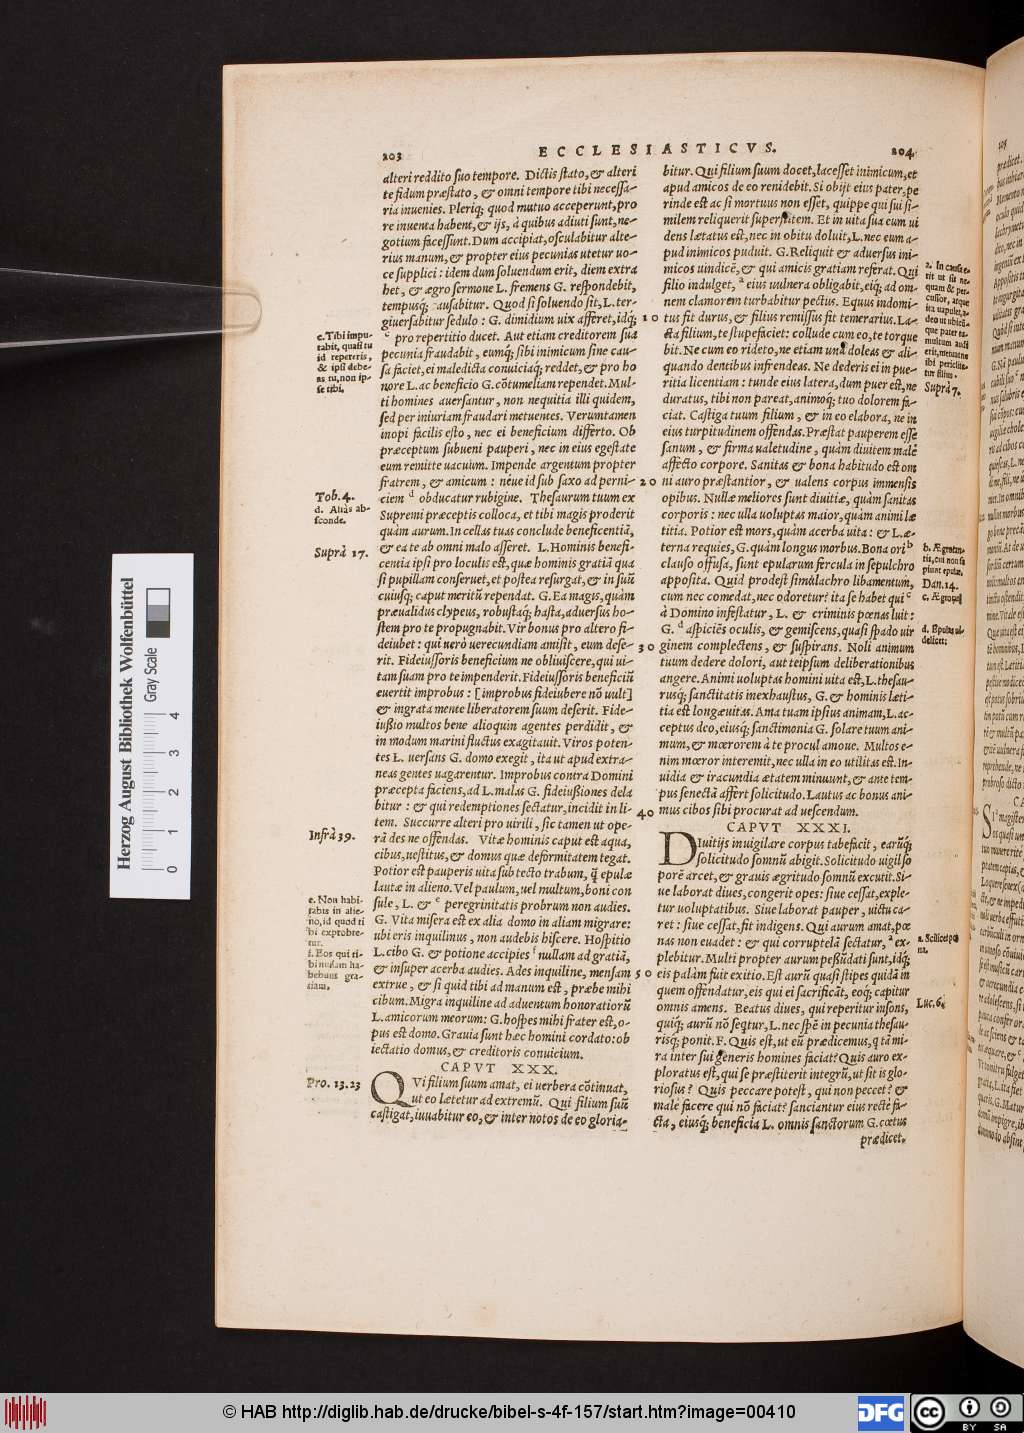 203
ECCLESIASTICVS.
204
alteri reddito suo tempore. Dictis stato, & alteri
te fidum præstato, & omni tempore tibi necessa-
ria inuenies. Pleriq; quod mutuo acceperunt, pro
re inuenta habent, & ijs, à quibus adiuti sunt, ne-
gotium facessunt. Dum accipiat, osculabitur alte-
rius manum, & propter eius pecunias utetur uo-
ce supplici: idem dum soluendum erit, diem extra
het, & ægro sermone L. fremens G. respondebit,
tempusq; causabitur. Quod si soluendo sit, L. ter-
giuersabitur sedulo: G. dimidium uix afferet, idq;
c pro repertitio ducet. Aut etiam creditorem sua
pecunia fraudabit, eumq; sibi inimicum sine cau-
sa faciet, ei maledicta conuiciaq; reddet, & pro ho
nore L. ac beneficio G. cōtumeliam rependet. Mul-
ti homines auersantur, non nequitia illi quidem,
sed per iniuriam fraudari metuentes. Veruntamen
inopi facilis esto, nec ei beneficium differto. Ob
præceptum subueni pauperi, nec in eius egestate
eum remitte uacuum. Impende argentum propter
fratrem, & amicum: néue id sub saxo ad perni-
ciem d obducatur rubigine. Thesaurum tuum ex
Supremi præceptis colloca, et tibi magis proderit
quàm aurum. In cellas tuas conclude beneficentiā,
& ea te ab omni malo asseret. L. Hominis benefi-
centia ipsi pro loculis est, quæ hominis gratiā qua
si pupillam conseruet, et postea resurgat, & in suū
cuiusq; caput meritū rependat. G. Ea magis, quàm
præualidus clypeus, robustaq; hasta, aduersus ho-
stem pro te propugnabit. Vir bonus pro altero fi-
deiubet: qui uerò uerecundiam amisit, eum dese-
rit. Fideiussoris beneficium ne obliuiscere, qui ui-
tam suam pro te impenderit. Fideiussoris beneficiū
euertit improbus: [improbus fideiubere nō uult]
& ingrata mente liberatorem suum deserit. Fide-
iussio multos bene alioquin agentes perdidit, &
in modum marini fluctus exagitauit. Viros poten-
tes L. uersans G. domo exegit, ita ut apud extra-
neas gentes uagarentur. Improbus contra Domini
præcepta faciens, ad L. malas G. fideiussiones dela
bitur: & qui redemptiones sectatur, incidit in li-
tem. Succurre alteri pro uirili, sic tamen ut ope-
rā des ne offendas. Vitæ hominis caput est aqua,
cibus, uestitus, & domus quæ deformitatem tegat.
Potior est pauperis uita sub tecto trabum, q̄ epulæ
lautæ in alieno. Vel paulum, uel multum, boni con
sule, L. & e peregrinitatis probrum non audies.
G. Vita misera est ex alia domo in aliam migrare:
ubi eris inquilinus, non audebis hiscere. Hospitio
L. cibo G. & potione accipies f nullam ad gratiā,
& insuper acerba audies. Ades inquiline, mensam
extrue, & si quid tibi ad manum est, præbe mihi
cibum. Migra inquiline ad aduentum honoratiorū
L. amicorum meorum: G. hospes mihi frater est, o-
pus est domo. Grauia sunt hæc homini cordato: ob
iectatio domus, & creditoris conuicium.
CAPVT XXX.
QVi filium suum amat, ei uerbera cōtinuat,
ut eo lætetur ad extremū. Qui filium suū
castigat, iuuabitur eo, & inter notos de eo gloria-
c. Tibi impu-
tabit, quasi tu
id repereris,
& ipsi debe-
as tu, non ip-
se tibi.
Tob. 4.
d. Aliàs ab-
sconde.
Suprà 17.
Infrà 39.
e. Non habi-
tabis in alie-
no, id quod ti
bi exprobre-
tur.
f. Eos qui ti-
bi nullam ha-
bebunt gra-
tiam.
Pro. 13.23
10
20
30
40
50
bitur. Qui filium suum docet, lacesset inimicum, et
apud amicos de eo renidebit. Si obijt eius pater, pe
rinde est ac si mortuus non esset, quippe qui sui si-
milem reliquerit superstitem. Et in uita sua cum ui
dens lætatus est, nec in obitu doluit, L. nec eum a-
pud inimicos puduit. G. Reliquit & aduersus ini-
micos uindicē, & qui amicis gratiam referat. Qui
filio indulget, a eius uulnera obligabit, eiq; ad om-
nem clamorem turbabitur pectus. Equus indomi-
tus fit durus, & filius remissus fit temerarius. La-
cta filium, te stupefaciet: collude cum eo, te torque
bit. Ne cum eo rideto, ne etiam unà doleas & ali-
quando dentibus infrendeas. Ne dederis ei in pue-
ritia licentiam: tunde eius latera, dum puer est, ne
duratus, tibi non pareat, animoq; tuo dolorem fa-
ciat. Castiga tuum filium, & in eo elabora, ne in
eius turpitudinem offendas. Præstat pauperem esse
sanum, & firma ualetudine, quàm diuitem malè
affecto corpore. Sanitas & bona habitudo est om
ni auro præstantior, & ualens corpus immensis
opibus. Nullæ meliores sunt diuitiæ, quàm sanitas
corporis: nec ulla uoluptas maior, quàm animi læ
titia. Potior est mors, quàm acerba uita: & L. æ-
terna requies, G. quàm longus morbus. Bona ori b
clauso offusa, sunt epularum fercula in sepulchro
apposita. Quid prodest simulachro libamentum,
cum nec comedat, nec odoretur? ita se habet qui c
à Domino infestatur, L. & criminis pœnas luit:
G. d aspiciēs oculis, & gemiscens, quasi spado uir
ginem complectens, & suspirans. Noli animum
tuum dedere dolori, aut teipsum deliberationibus
angere. Animi uoluptas homini uita est, L. thesau-
rusq; sanctitatis inexhaustus, G. & hominis læti-
tia est longæuitas. Ama tuam ipsius animam, L. ac-
ceptus deo, eiusq; sanctimonia G. solare tuum ani-
mum, & mœrorem à te procul amoue. Multos e-
nim mœror interemit, nec ulla in eo utilitas est. In-
uidia & iracundia ætatem minuunt, & ante tem-
pus senectā affert solicitudo. Lautus ac bonus ani-
mus cibos sibi procurat ad uescendum.
CAPVT XXXI.
DIuitijs inuigilare corpus tabefacit, earūq;
solicitudo somnū abigit. Solicitudo uigilso
porē arcet, & grauis ægritudo somnū excutit. Si-
ue laborat diues, congerit opes: siue cessat, exple-
tur uoluptatibus. Siue laborat pauper, uictu ca-
ret: siue cessat, fit indigens. Qui aurum amat, pœ
nas non euadet: & qui corruptelā sectatur, a ex-
plebitur. Multi propter aurum pessūdati sunt, idq;
eis palàm fuit exitio. Est aurū quasi stipes quidā in
quem offendatur, eis qui ei sacrificāt, eoq; capitur
omnis amens. Beatus diues, qui reperitur insons,
quiq; aurū nō seqtur, L. nec spē in pecunia thesau-
risq; ponit. F. Quis est, ut eū prædicemus, q tā mi-
ra inter sui generis homines faciat? Quis auro ex-
ploratus est, qui se præstiterit integrū, ut sit is glo-
riosus? Quis peccare potest, qui non peccet? &
malè facere qui nō faciat? sanciantur eius rectè fa-
cta, eiusq; beneficia L. omnis sanctorum G. cœtus
prædicet.
a. In causa e-
rit ut sit ne-
quam & per-
cussor, atque
ita uapulet, a-
deo ut ubicū-
que pater tu-
multum audi
erit, metuat ne
ibi periclite-
tur filius.
Suprà 7.
b. Ægrotan-
tis, cui non sa
piunt epulæ.
Dan. 14.
c. Ægrotus
d. Epulas ui-
delicet:
a. Scilicet pœ
na.
Luc. 6.
Herzog August Bibliothek Wolfenbüttel
Gray Scale
0 1 2 3 4
© HAB http://diglib.hab.de/drucke/bibel-s-4f-157/start.htm?image=00410
DFG
cc
BY SA